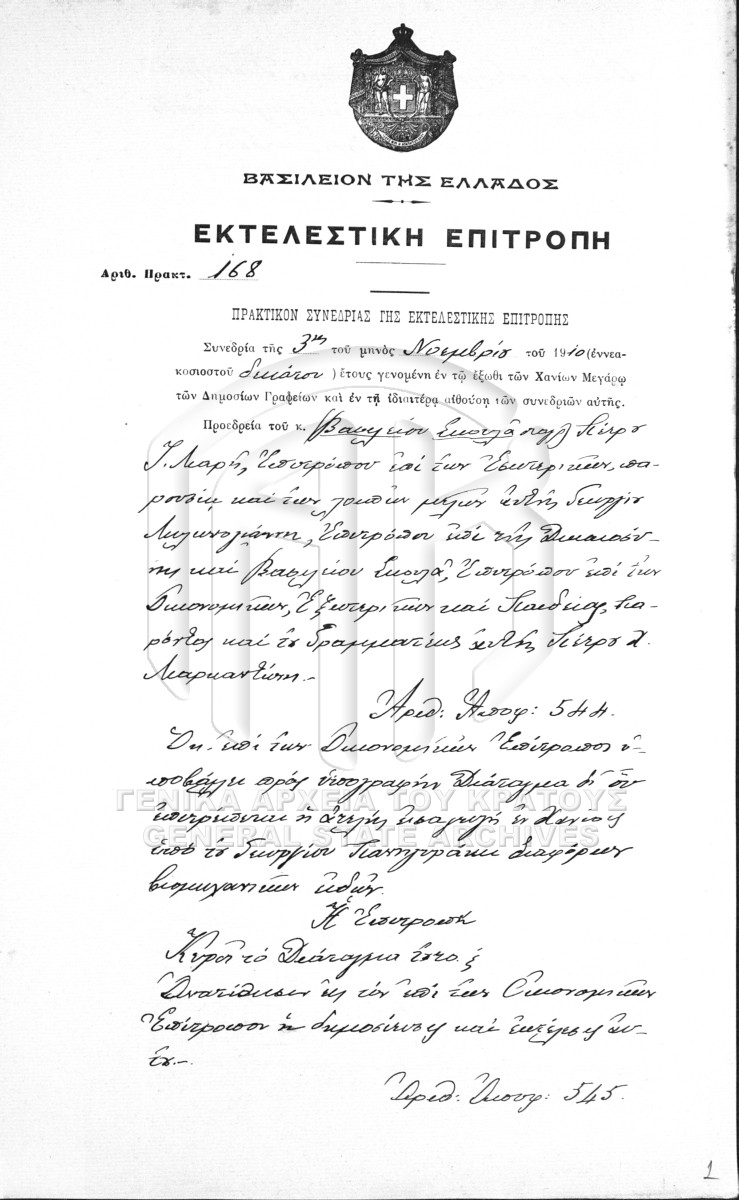 ΒΑΣΙΛΕΙΟΝ ΤΗΣ ΕΛΛΑΔΟΣ
ΕΚΤΕΛΕΣΤΙΚΗ ΕΠΙΤΡΟΠΗ
Αριθ. Πρακτ. 168
ΠΡΑΚΤΙΚΟΝ ΣΥΝΕΔΡΙΑΣ ΤΗΣ ΕΚΤΕΛΕΣΤΙΚΗΣ ΕΠΙΤΡΟΠΗΣ
Συνεδρία τῆς 3ης τοῦ μηνὸς Νοεμβρίου τοῦ 1910 (ἐννεα-
κοσιοστοῦ δεκάτου ) ἔτους γενομένη ἐν τῷ ἔξωθι τῶν Χανίων Μεγάρῳ
τῶν Δημοσίων Γραφείων καὶ ἐν τῇ ἰδιαιτέρᾳ αἰθούσῃ τῶν συνεδριῶν αὐτῆς.
Προεδρεία τοῦ κ. Πέτρου
Γ. Μαρῆ, Ἐπιτρόπου ἐπὶ τῶν Ἐσωτερικῶν, πα-
ρουσίᾳ καὶ τῶν λοιπῶν μελῶν αὐτῆς Γεωργίου
Μυλωνογιάννη, Ἐπιτρόπου ἐπὶ τῆς Δικαιοσύ-
νης καὶ Βασιλείου Σκουλᾶ, Ἐπιτρόπου ἐπὶ τῶν
Οἰκονομικῶν, Ἐξωτερικῶν καὶ Παιδείας, πα-
ρόντος καὶ τοῦ Γραμματέως αὐτῆς Πέτρου Χ.
Μαρκαντώνη.-
Ἀριθ: Ἀποφ: 544.
Ὁ ἐπὶ τῶν Οἰκονομικῶν Ἐπίτροπος ὑ-
ποβάλλει πρὸς ὑπογραφὴν Διάταγμα δι' οὗ
ἐπιτρέπεται ἡ ἀτελὴς εἰσαγωγὴ ἐν Χανίοις
ὑπὸ τοῦ Γεωργίου διαφόρων
βιομηχανικῶν εἰδῶν.
Ἡ Ἐπιτροπὴ
Κυροῖ τὸ Διάταγμα τοῦτο ξ
Ἀνατίθησιν εἰς τὸν ἐπὶ τῶν Οἰκονομικῶν
Ἐπίτροπον τὴν δημοσίευσιν καὶ ἐκτέλεσιν αὐ-
τοῦ.-
Ἀριθ: Ἀποφ: 545.
ΓΕΝΙΚΑ ΑΡΧΕΙΑ ΤΟΥ ΚΡΑΤΟΥΣ
GENERAL STATE ARCHIVES
1